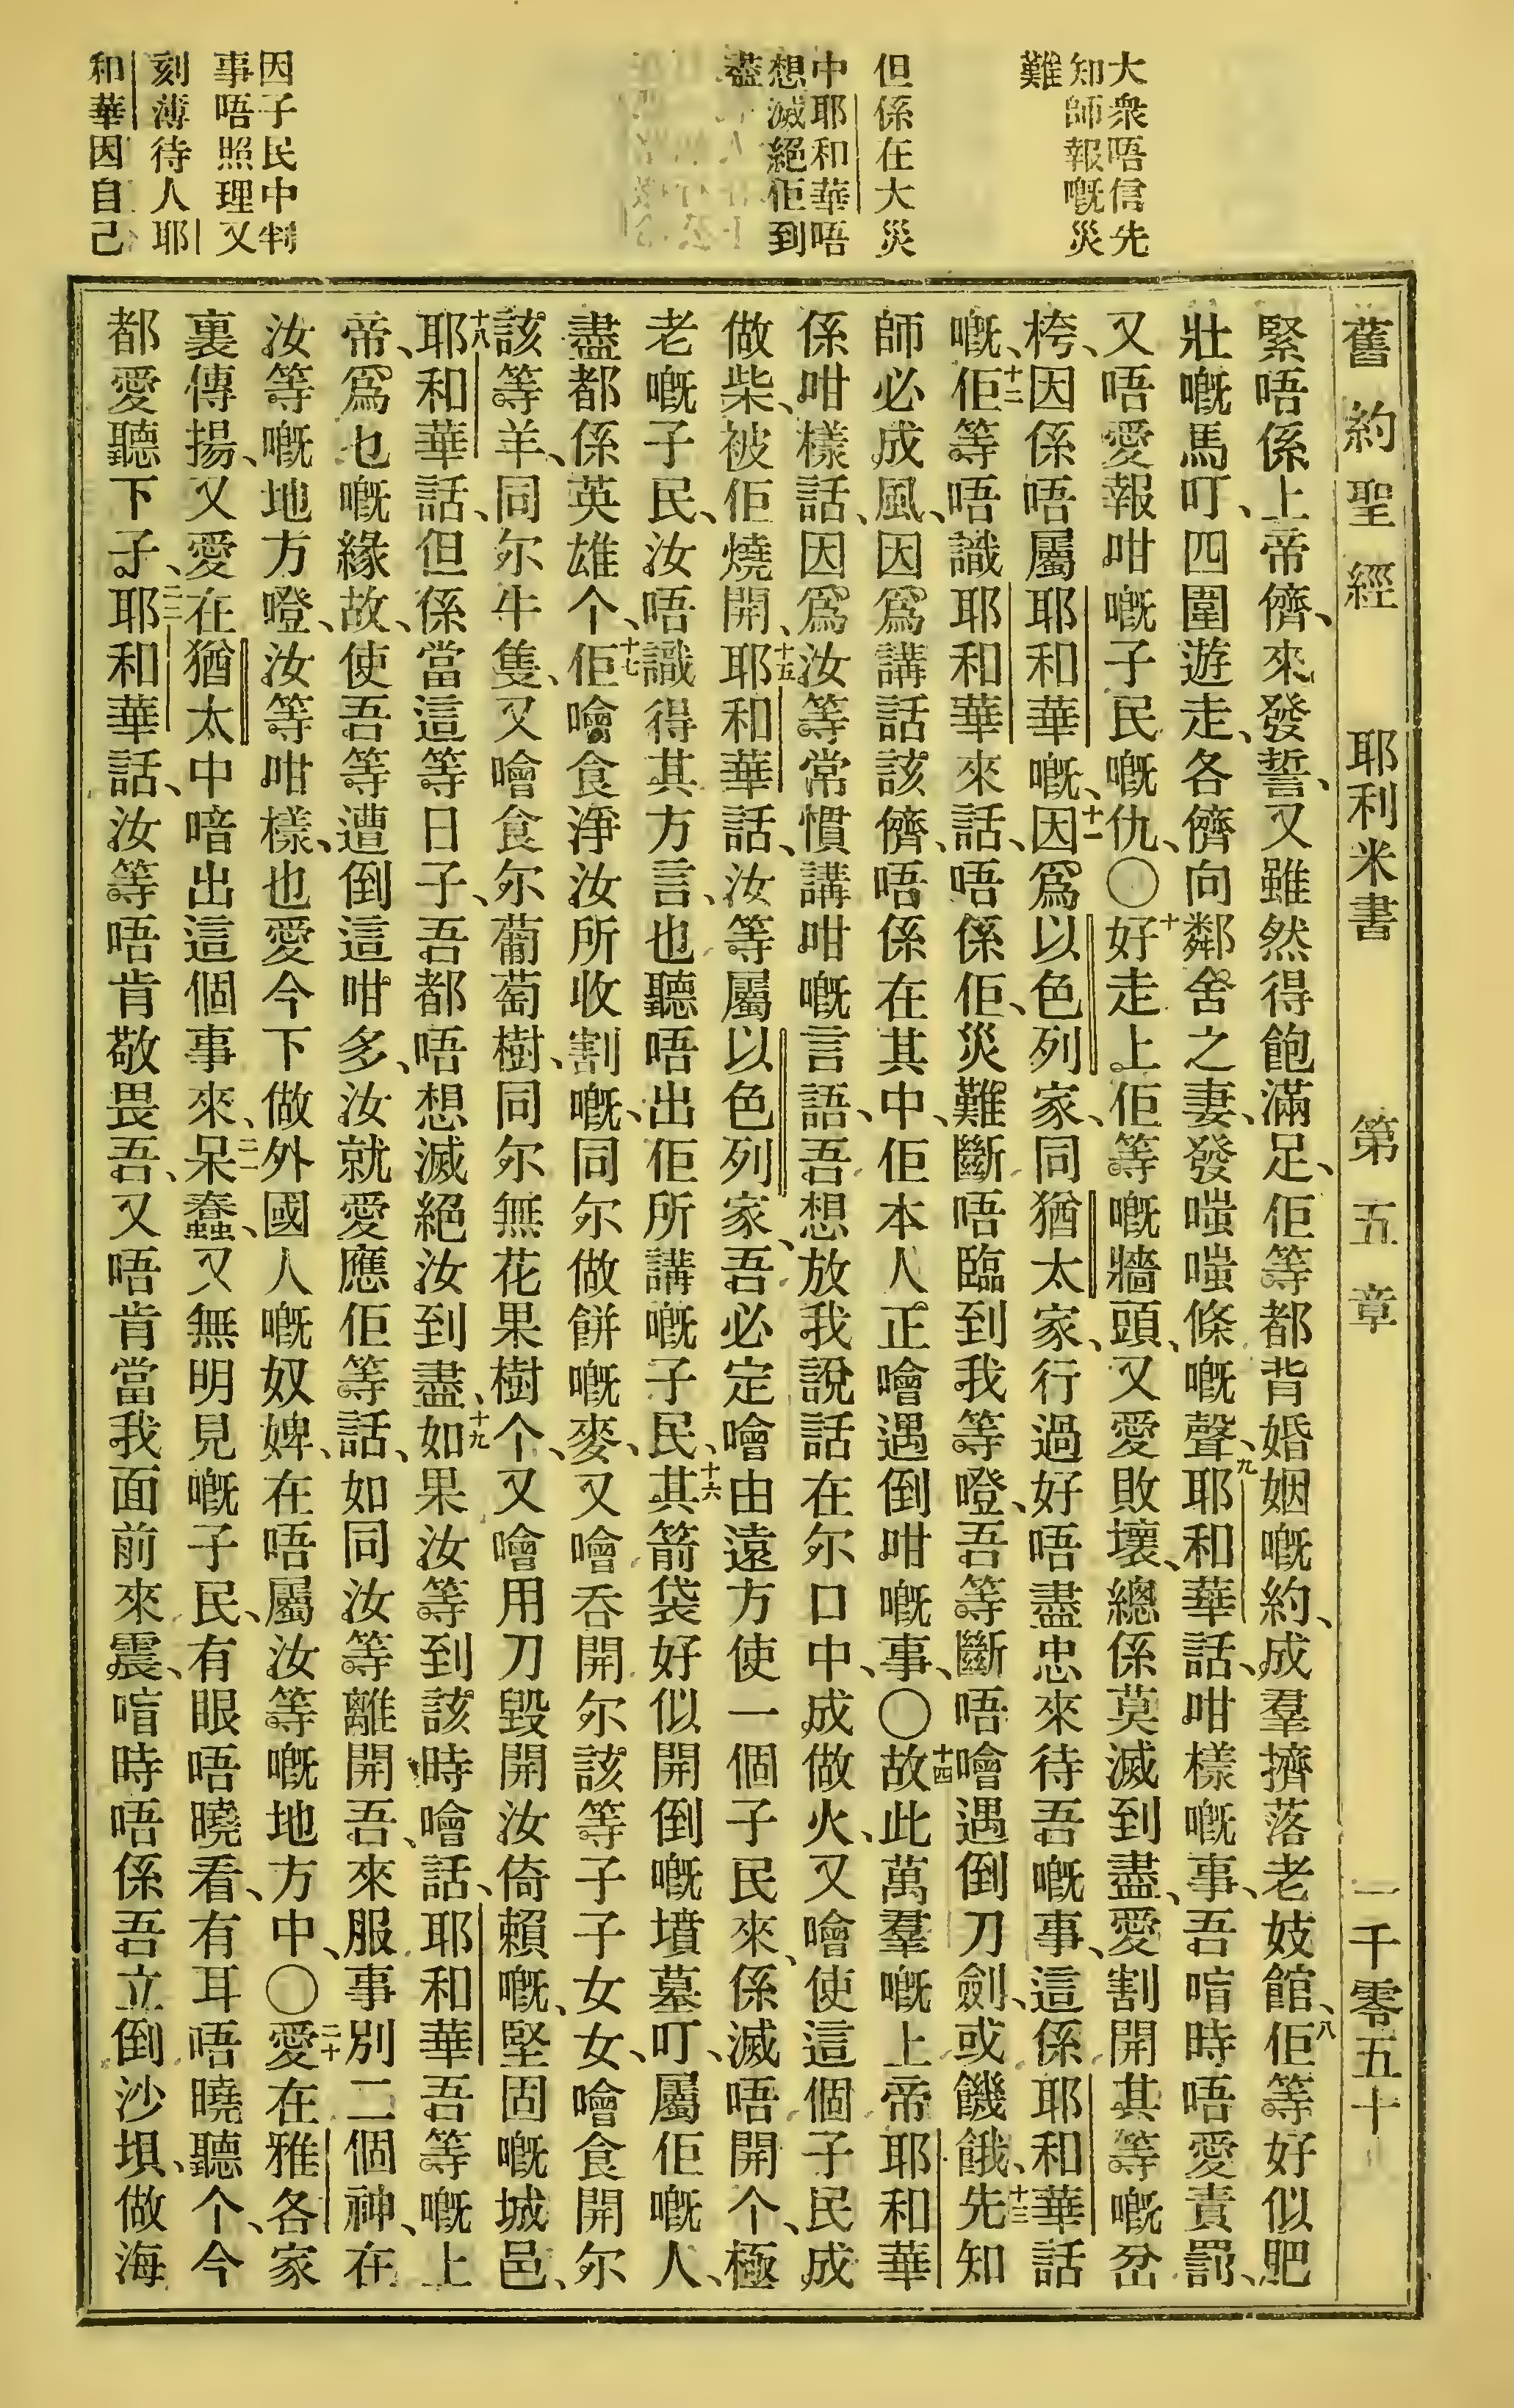 大衆唔信先
知師報嘅災
難
但係在大災
中耶和華唔
想滅絕佢到
盡
因子民中判
事唔照理又
刻薄待人耶
和華因自己
舊約聖經 耶利米書 第五章 一千零五十
緊唔係上帝儕、來發誓、又雖然得飽滿足、佢等都背婚姻嘅約、成羣擠落老妓館、八佢等好似肥
壯嘅馬叮、四圍遊走、各儕向鄰舍之妻、發嗤嗤條嘅聲、九耶和華話、咁樣嘅事、吾喑時唔愛責罰、
又唔愛報咁嘅子民嘅仇、〇十好走上佢等嘅牆頭、又愛敗壞、總係莫滅到盡、愛割開其等嘅岔
桍、因係唔屬耶和華嘅、十一因爲以色列家、同猶太家、行過好唔盡忠來待吾嘅事、這係耶和華話
嘅、十二佢等唔識耶和華來話、唔係佢、災難斷唔臨到我等噔、吾等斷唔噲遇倒刀劍、或饑餓、十三先知
師必成風、因爲講話該儕、唔係在其中、佢本人正噲遇倒咁嘅事、〇十四故此萬羣嘅上帝耶和華
係咁樣話、因爲汝等常慣講咁嘅言語、吾想放我說話在尔口中、成做火、又噲使這個子民成
做柴、被佢燒開、十五耶和華話、汝等屬以色列家、吾必定噲由遠方使一個子民來、係滅唔開个、極
老嘅子民、汝唔識得其方言、也聽唔出佢所講嘅子民、十六其箭袋好似開倒嘅墳墓叮、屬佢嘅人、
盡都係英雄个、十七佢噲食淨汝所收割嘅、同尔做餅嘅麥、又噲吞開尔該等子子女女、噲食開尔
該等羊、同尔牛隻、又噲食尔葡萄樹、同尔無花果樹个、又噲用刀毀開汝倚賴嘅、堅固嘅城邑、
十八耶和華話、但係當這等日子、吾都唔想滅絕汝到盡、十九如果汝等到該時噲話、耶和華吾等嘅上
帝、爲乜嘅緣故、使吾等遭倒這咁多、汝就愛應佢等話、如同汝等離開吾、來服事別二個神、在
汝等嘅地方噔、汝等咁樣、也愛今下做外國人嘅奴婢、在唔屬汝等嘅地方中、〇二十愛在雅各家
裏傳揚、又愛在猶太中喑出這個事來、二一呆蠢、又無明見嘅子民、有眼唔曉看、有耳唔曉聽个、今
都愛聽下子、二二耶和華話、汝等唔肯敬畏吾、又唔肯當我面前來震、喑時唔係吾立倒沙垻、做海